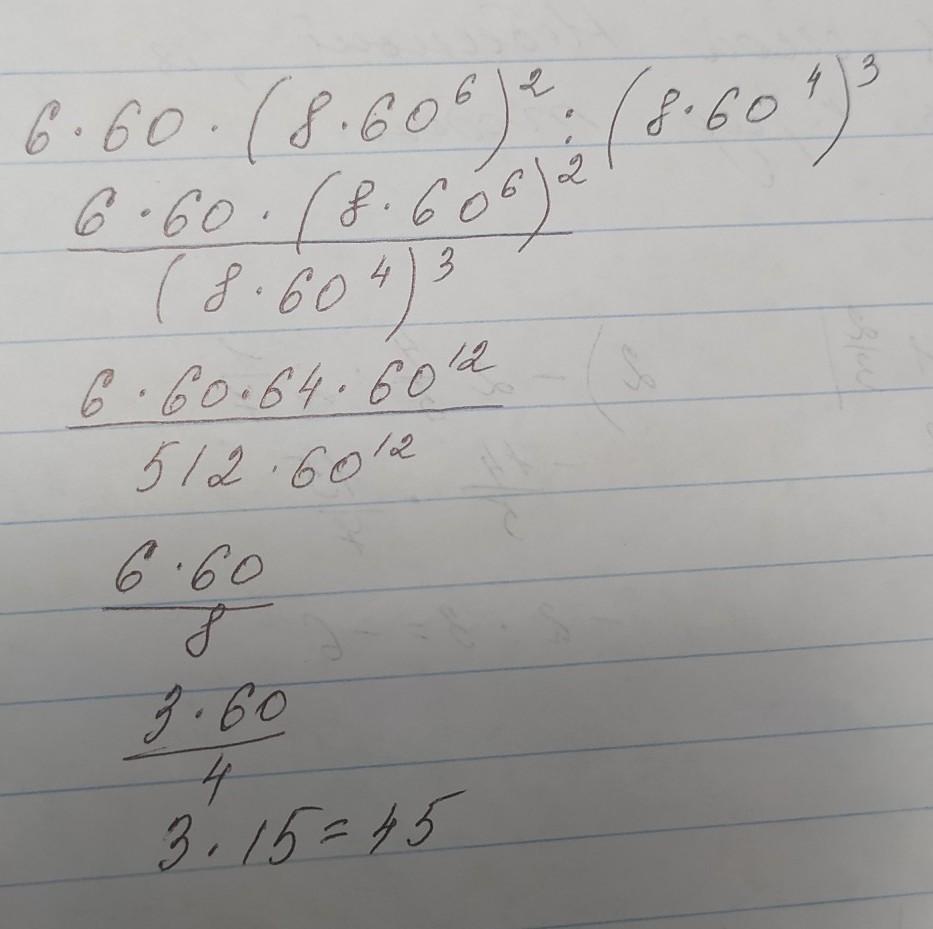 6·60·(8·60⁶)²:(8·60⁴)³
6·60·(8·60⁶)²
(8·60⁴)³
6·60·64·60¹²
512·60¹²
6·60
8
3·60
4
3·15=45